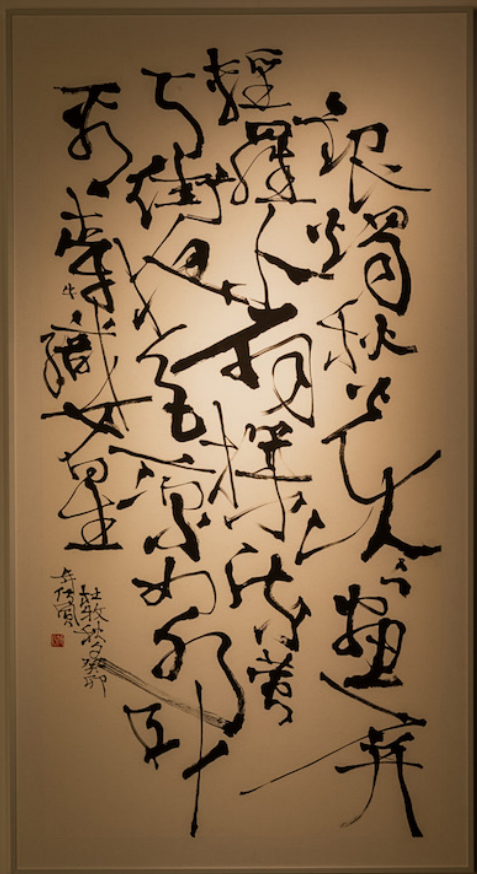 銀燭秋光冷畫屏
輕羅小扇撲流螢
天街夜色涼如水卧
看牽牛織女星
杜牧秋夕癸卯